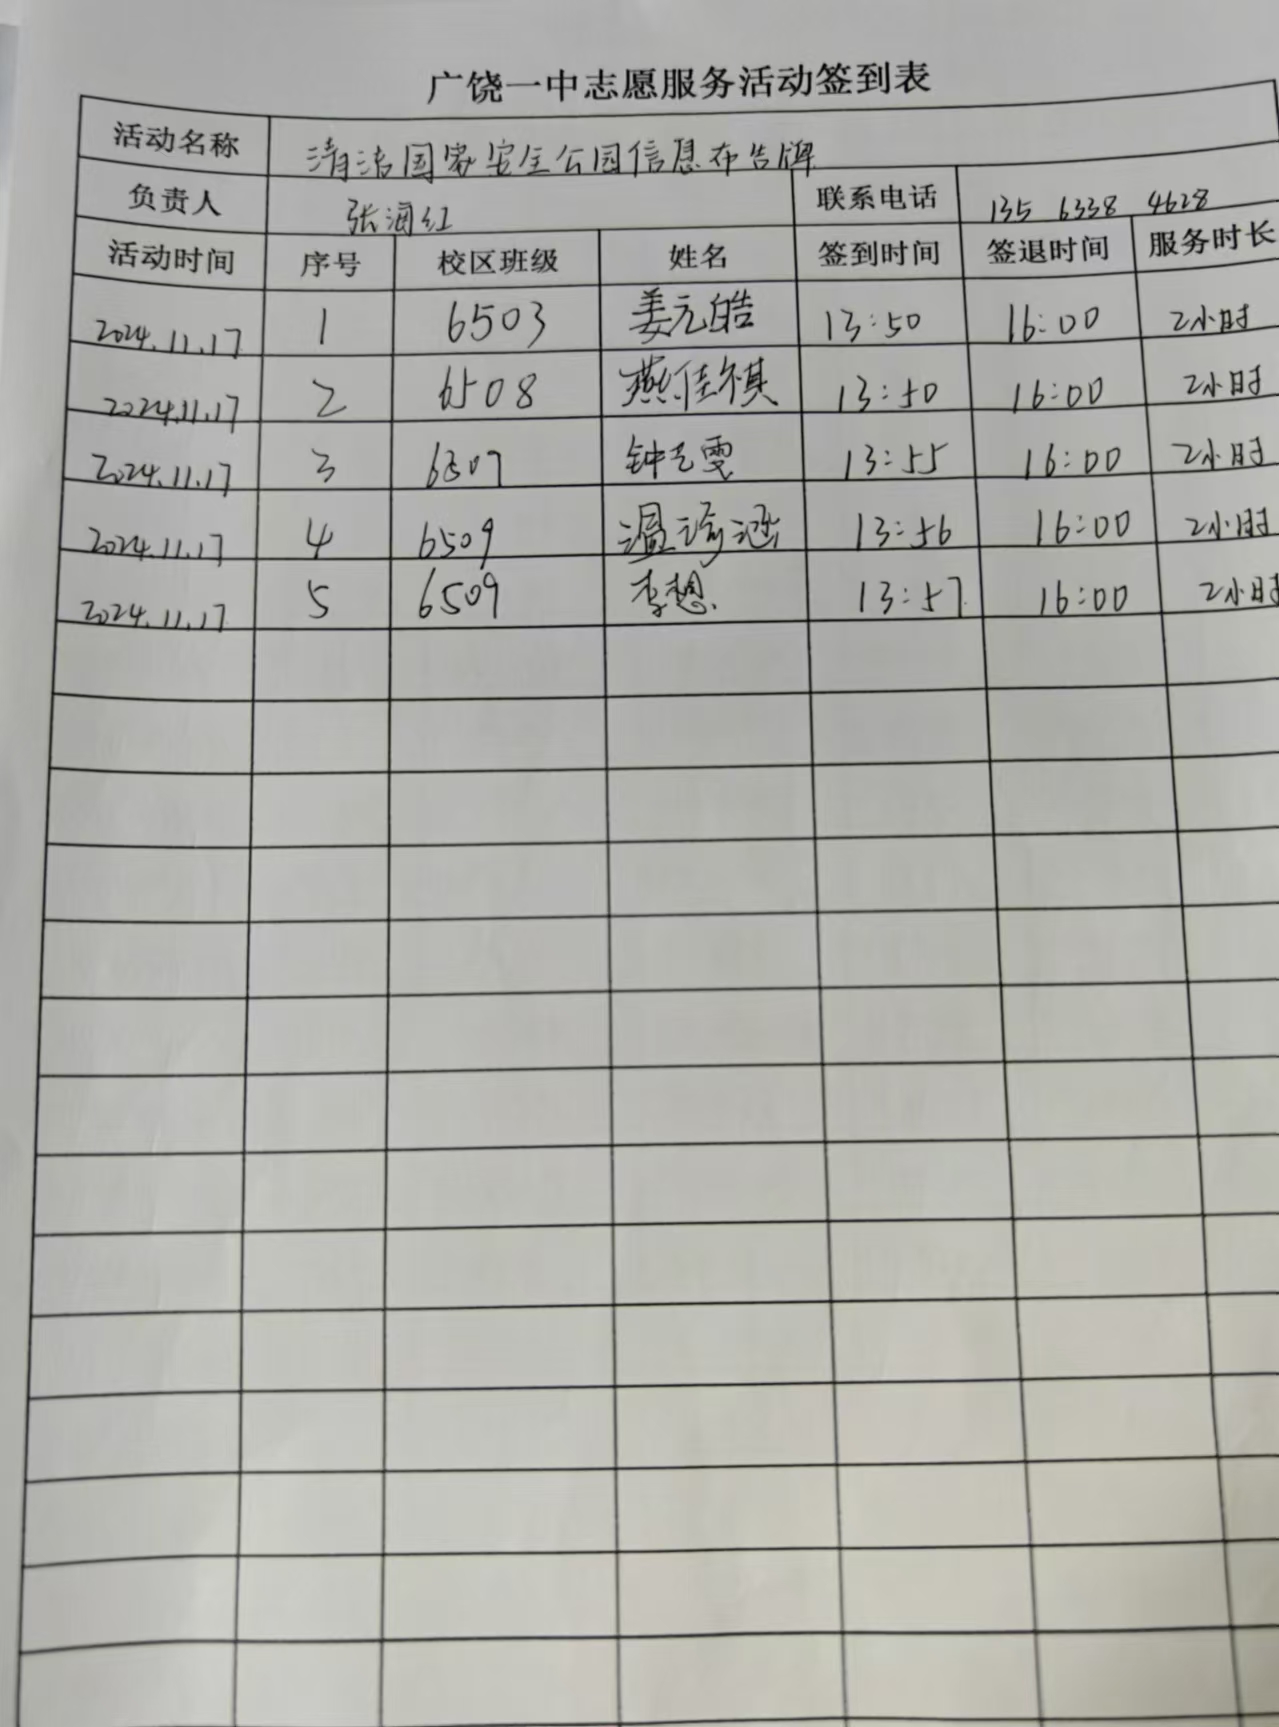 广饶一中志愿服务活动签到表
活动名称 清洁国家安全公园信息布告牌
负责人 张海红 联系电话 135 6338 4628
活动时间 序号 校区班级 姓名 签到时间 签退时间 服务时长
2024.11.17 1 6503 姜元皓 13:50 16:00 2小时
2024.11.17 2 6508 燕佳祺 13:50 16:00 2小时
2024.11.17 3 6507 钟 雯 13:55 16:00 2小时
2024.11.17 4 6509 温 涵 13:56 16:00 2小时
2024.11.17 5 6509 李想 13:57 16:00 2小时